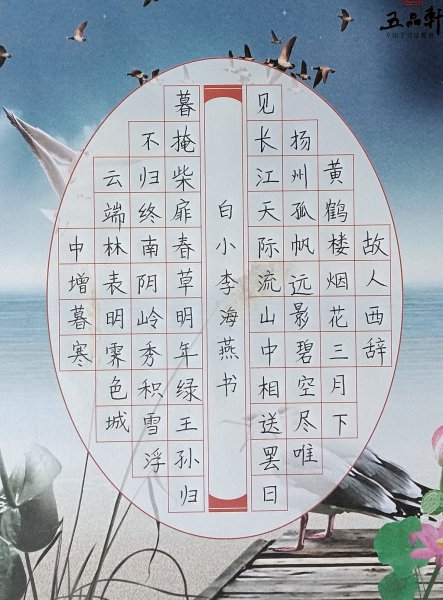 五品軒
故人西辞
黄鹤楼烟花三月下
扬州孤帆远影碧空尽唯
见长江天际流山中相送罢日
白小李海燕书
暮掩柴扉春草明年绿王孙归
不归终南阴岭秀积雪浮
云端林表明霁色城
中增暮寒